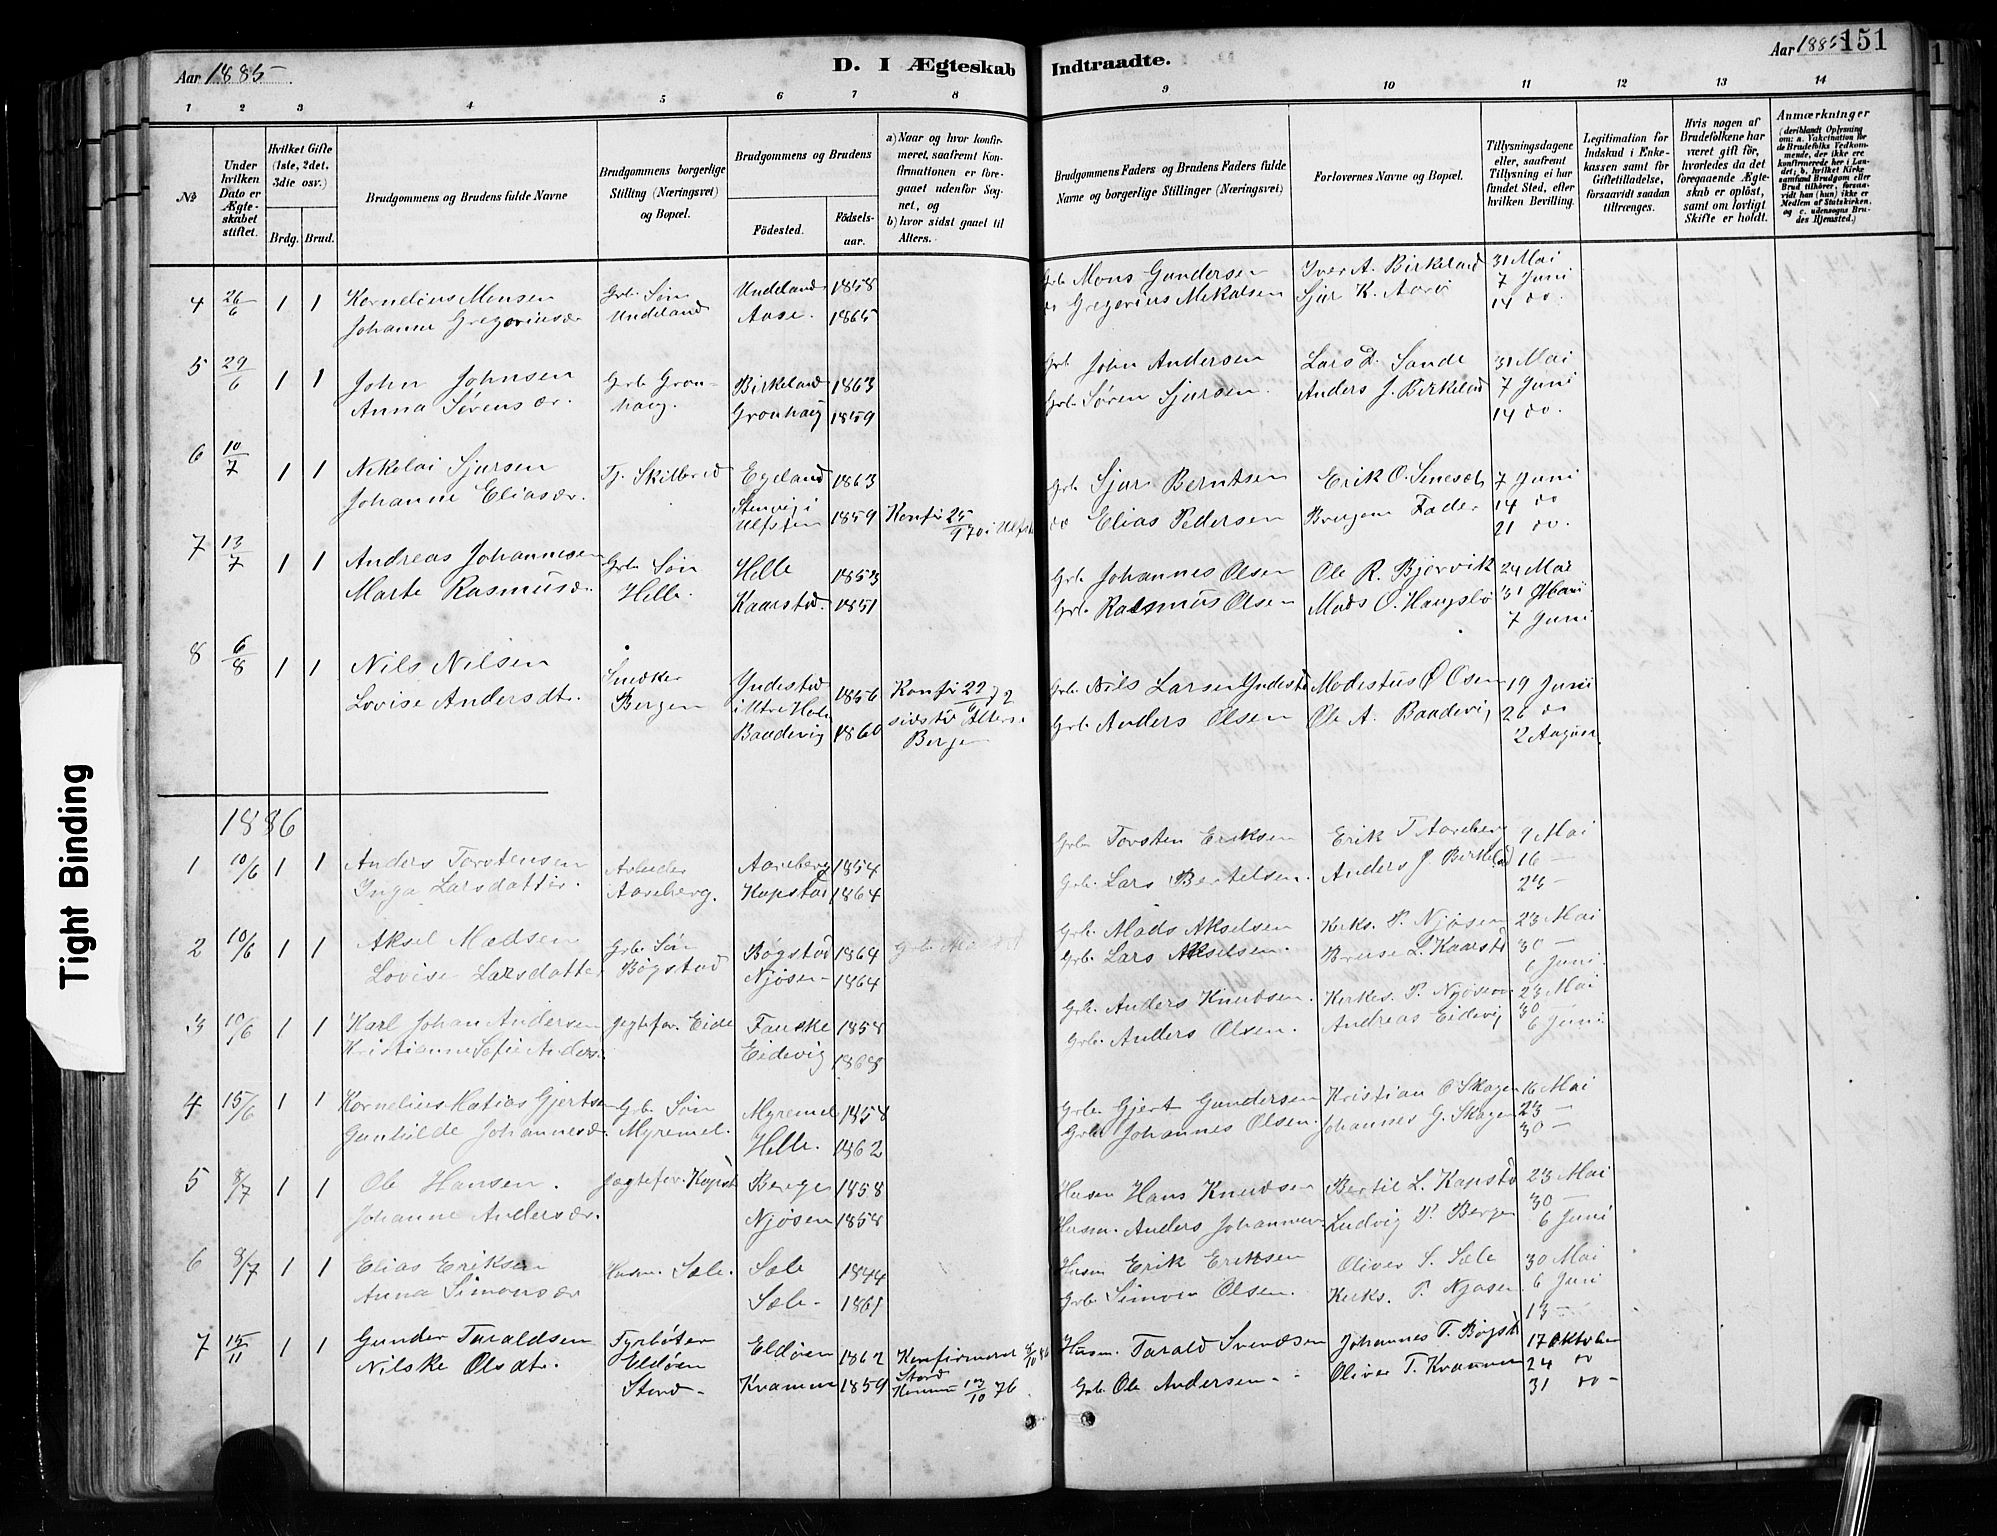 Aar 1885. D. I Ægteskab Indtraadte. Aar 1885 151
1 2 3 4 5 6 7 8 9 10 11 12 13 14
№
Under hvilken Dato er Ægteskabet stiftet.
Hvilket Gifte (1ste, 2det, 3die osv.)
Brdg. Brud.
Brudgommens og Brudens fulde Navne
Brudgommens borgerlige Stilling (Næringsvei) og Bopæl.
Brudgommens og Brudens
Födested. Födselsaar.
a) Naar og hvor konfirmeret, saafremt Konfirmationen er foregaaet udenfor Sognet, og
b) hvor sidst gaaet til Alters.
Brudgommens Faders og Brudens Faders fulde Navne og borgerlige Stillinger (Næringsvei)
Forlovernes Navne og Bopæl.
Tillysningsdagene eller, saafremt Tillysning ei har fundet Sted, efter hvilken Bevilling.
Legitimation for Indskud i Enkekassen samt for Giftetilladelse, forsaavidt saadan tiltrænges.
Hvis nogen af Brudefolkene har været gift för, hvorledes da det foregaaende Ægteskab er oplöst, samt om lovligt Skifte er holdt.
Anmærkninger
(deriblandt Oplysning om: a. Vakcination for de Brudefolks Vedkommende, der ikke ere konfirmerede her i Landet; b. hvilket Kirkesamfund Brudgom eller Brud tilhörer, forsaavidt han (hun) ikke er Medlem af Statskirken, og c. udensogns Brudes Hjemsted.)
4 26/6 1 1 Kornelius Monsen Grb. Søn Undeland 1858 Grb Mons Gundersen Iver A. Birkeland 31 Mai
Johanne Gregoriusdr Undeland Aase. 1865 do Gregorius Mikalsen Sjur K. Aarø 7 Juni
14 do.
5 29/6 1 1 John Johnsen Grb. Gron- Birkeland 1863 Grb John Andersen Lars D. Sande 31 Mai
Anna Sørensdr. haug. Gronhaug 1859 Grb. Søren Sjursen. Anders J. Birkeland 7 Juni
14 do.
6 10/7 1 1 Nikolai Sjursen Skilbred Egeland 1863 Grb. Sjur Berntsen Erik O. 7 Juni
Johanne Eliasdr. Stenvig i Ulfsten 1859 Konfir 25/9 70 i do Elias Pedersen Fader 14 do
21 do.
7 13/7 1 1 Andreas Johannesen Grb. Søn Helle 1853 Grb. Johannes Olsen Ole R. Bjørvik 24 Mai
Marte Rasmusdr Helle. Kaarstad. 1851 Grb. Rasmus Olsen Mads O. 31 Mai
7 Juni
8 6/8 1 1 Nils Nilsen Snedker Yndestad 1856 Konfir 22/6 72 Grb. Nils Larsen Yndestd Modestus Ø Osen 19 Juni
Lovise Andersdtr. Bergen i Baadevig 1860 sidst til Alters Bergen Grb. Anders Olsen Ole A. Baadevig 26 do
2 August.
1886
1 10/6 1 1 Anders Torstensen Arbeider Aareberg 1854 Grb. Torsten Eriksen Erik T Aareberg 9 Mai
Inga Larsdatter. Aareberg. Kapstad 1864 Grb. Lars Bertelsen. Anders J. Birkeld 16 —
23 —
2 10/6 1 1 Aksel Madsen Grb. Søn Bøgstad 1864 Grb. Mads Akselsen Kirks. P. Njøsen 23 Mai
Lovise Larsdatter Bøgstad Njøsen 1864 Grb. Lars Akselsen. L. Kaarstd 30 —
6 Juni
3 10/6 1 1 Karl Johan Andersen Jegtefør. Eide Fauske 1858 Grb. Anders Knudsen. Kirkes. P. Njøsen 23 Mai
Kristianne Sofie Anders. Eidevig Grb. Anders Olsen. Andreas Eidevig 30
6 Juni.
4 15/6 1 1 Kornelius Matias Gjertsen Grb. Søn Myremel 1858 Grb. Gjert Gundersen Kristian O Skagen 16 Mai
Gunhilde Johannesdr. Myremel. Helle. 1862 Grb. Johannes Olsen. Johannes G. Skagen 23 —
30 —
5 8/7 1 1 Ole Hansen. Jægtefør. Kapst Berge 1858 Husm Hans Knudsen Bertil L. Kapstd 23 Mai
Johanne Andersdr. Njøsen 1858 Husm. Anders Johannes Ludvig P. Berge 30 —
6 Juni
6 8/7 1 1 Elias Eriksen Husm. Sæle. Sæle 1844 Husm Erik Eriksen Oliver S. Sæle 30 Mai
Anna Simonsdr Sæle. 1861 Grb. Simon Olsen. Kirks. P. Njøsen 6 Juni
13 —
7 15/11 1 1 Gunder Taraldsen Fyrbøter Eldøen 1862 Konfirmeret Husm. Tarald Svendsen Johannes T. Bøgst 17 Oktober
Nilske Olsdtr. Eldøen Stord Kvamme 1859 Stord 13/10 76. Grb. Ole Andersen Oliver T. Kvamme 24 do
31 do
Tight Binding